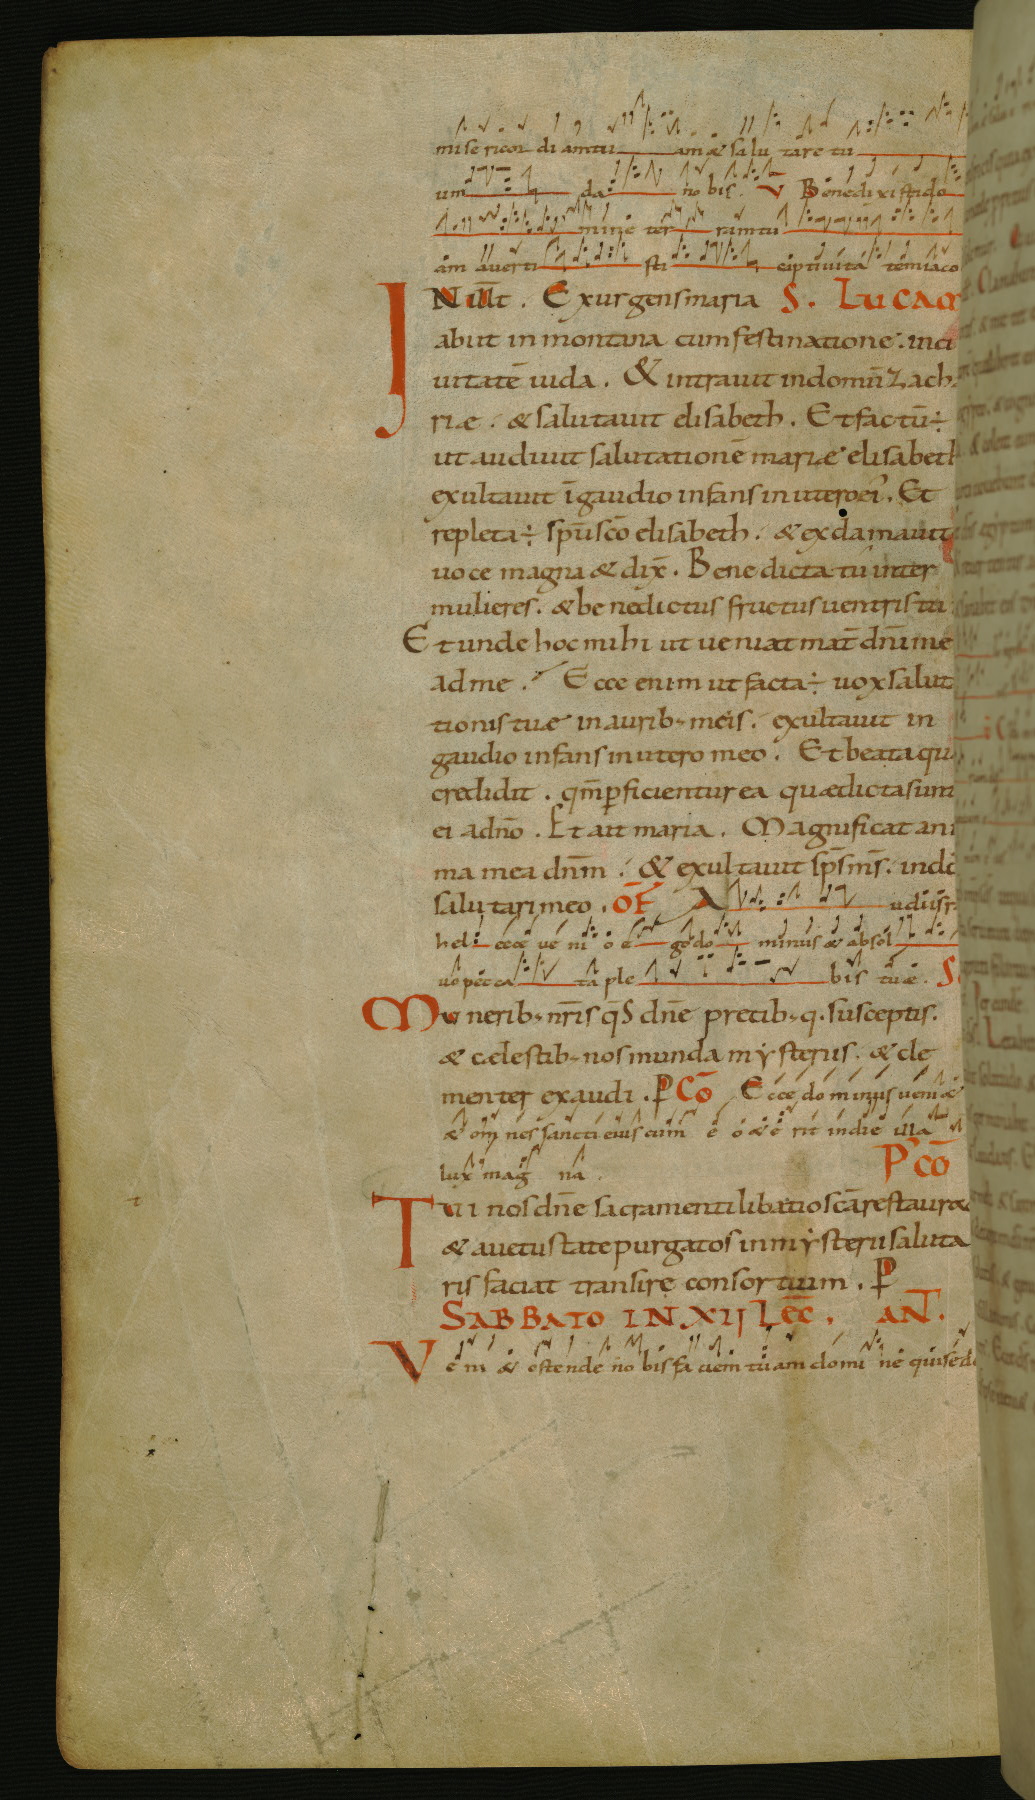 misericordiam tu am & salu tare tu
um da no bis. V Benedixisti do
mine ter ram tu
am auerti sti captiuita tem iaco
IN illt. Exurgens maria S. LUCAM
abiit in montana cum festinatione. inci
uitatē iuda. & intrauit in domū zacha
riæ. & salutauit elisabeth. Et factū ÷
ut audiuit salutationē mariæ elisabeth
exultauit ī gaudio infans in utero ei'. Et
repleta ÷ sp̄u sc̄o elisabeth. & exclamauit
uoce magna & dix̄. Benedicta tu inter
mulieres. & benedictus fructus uentris tui
Et unde hoc mihi ut ueniat mat̄ dn̄i me
ad me. Ecce enim ut facta ÷ uox saluta
tionis tuæ in aurib; meis. exultauit in
gaudio infans in utero meo. Et beata quæ
credidit. qm̄ p̄ficientur ea quæ dicta sunt
ei a dn̄o. Et ait maria. Magnificat ani
ma mea dn̄m. & exultauit sp̄s ms̄. in dō
salutari meo. OF̄ A udi isr
hel ecce ue ni o e go do minus & absol
uo pecca ta ple bis tuæ. S
Munerib; nr̄is qs̄ dn̄e precib; q. susceptis.
& cælestib; nos munda mysteriis. & cle
menter exaudi. P COM̄ Ecce dominus ueni &
& om̄ nes sancti eius cum e o & e rit in die illa
lux mag na. P'cō
Tui nos dn̄e sacramenti libatio sc̄a restauret
& a uetustate purgatos in mysterii saluta
ris faciat transire consortium. P
SABBATO IN XII LEC̄. AN̄.
Veni & ostende no bis faciem tuam domi ne qui sede